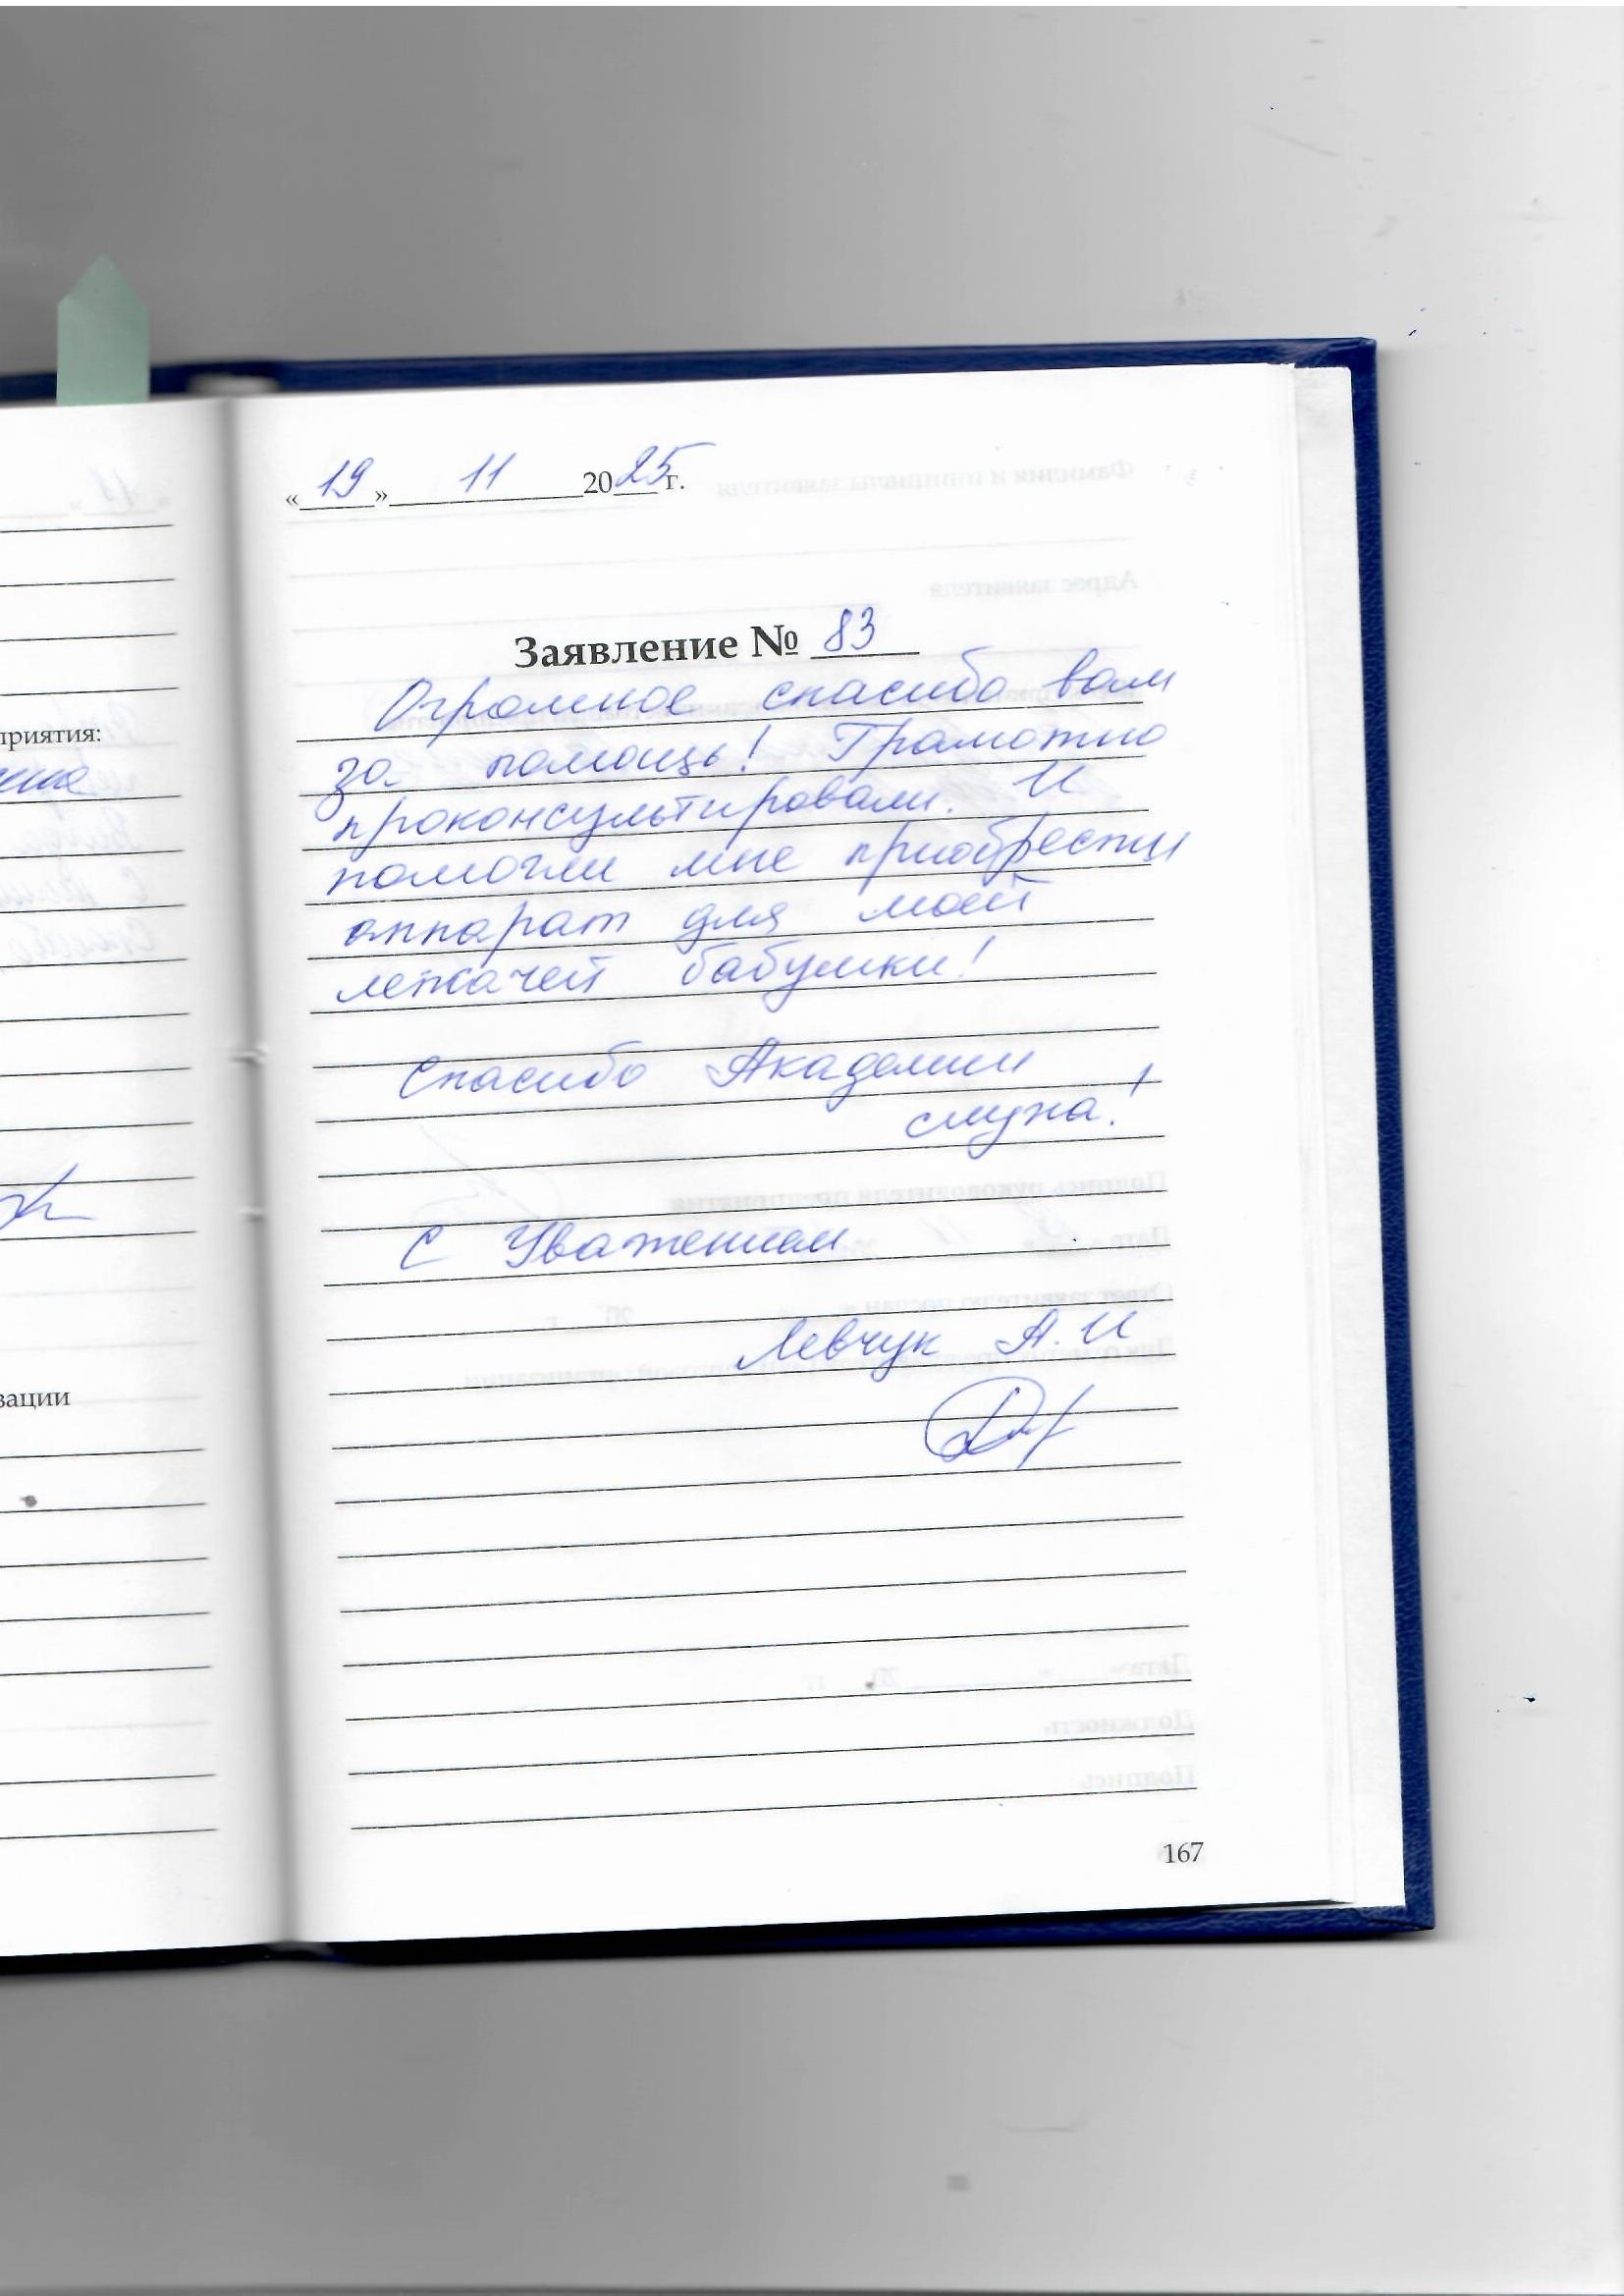 «19» 11 2025 г.
Заявление № 83
Огромное спасибо вам
за помощь! Грамотно
проконсультировали. И
помогли мне приобрести
аппарат для моей
лежачей бабушки!
Спасибо Академии
слуха!
С Уважением
Левчук А. И
167
приятия:
зации